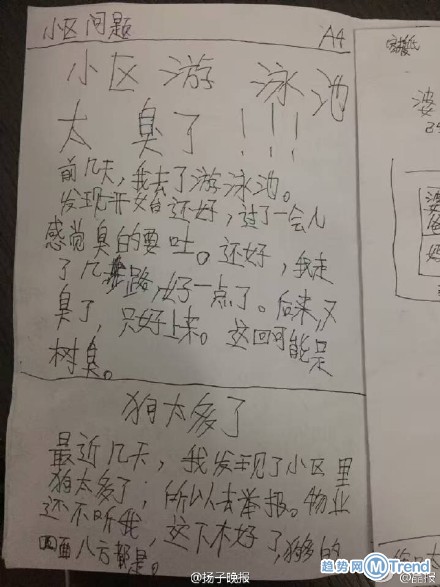 小区问题 A4
小区 游 泳池
太 臭了!!!
前几天，我去了游泳池。
发现开始还好，过了一会儿
感觉臭的要吐。还好，我走
了几步路，好一点了。后来，又
臭了，只好上来。这回可能是
树臭。
狗太多了
最近几天，我发现了小区里
狗太多了，所以去举报。物业
还不听我，这下不好了，狗多的
四面八方都是。
婆
@扬子晚报
趋势网 MTrend